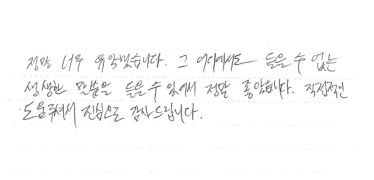 정말 너무 유익했습니다. 그 어디에서도 들을 수 없는
생생한 말씀을 들을 수 있어서 정말 좋았습니다. 직접적인
도움주셔서 진심으로 감사드립니다.